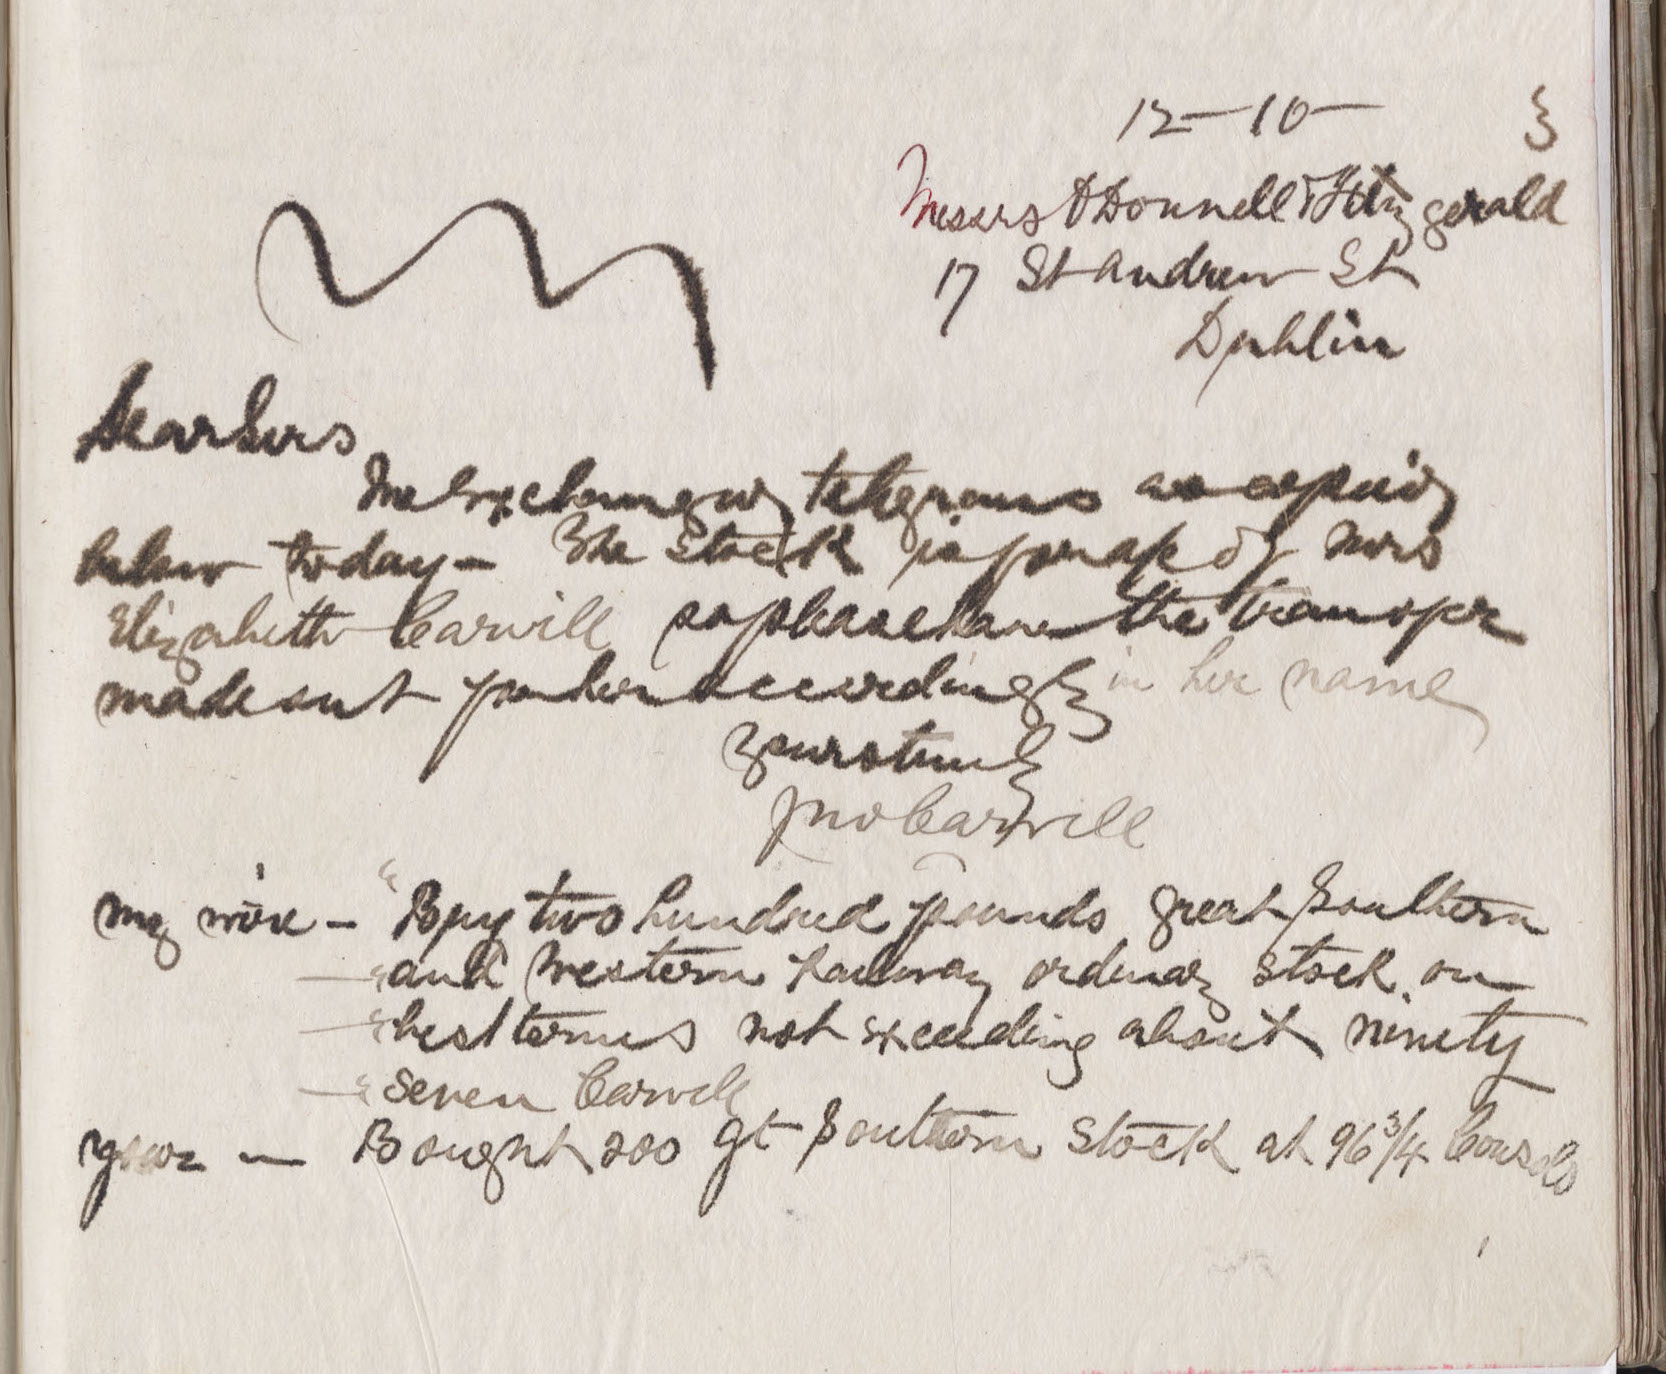 12-10- 3
Messrs O'Donnell & Fitzgerald
17 St Andrew St
Dublin
Dear Sirs
We Exchanged telegrams as copied
below today - The Stock is for use of Mrs
Elizabeth Carvill so please have the transfer
made out for her accordingly in her name
Yours truly
Jno Carvill
My wire - "Buy two hundred pounds great Southern
— "and Western Railway ordinary stock on
— "best terms not exceeding about ninety
— "seven Carvill
Your — Bought 200 Gt Southern Stock at 96 3/4 Consols